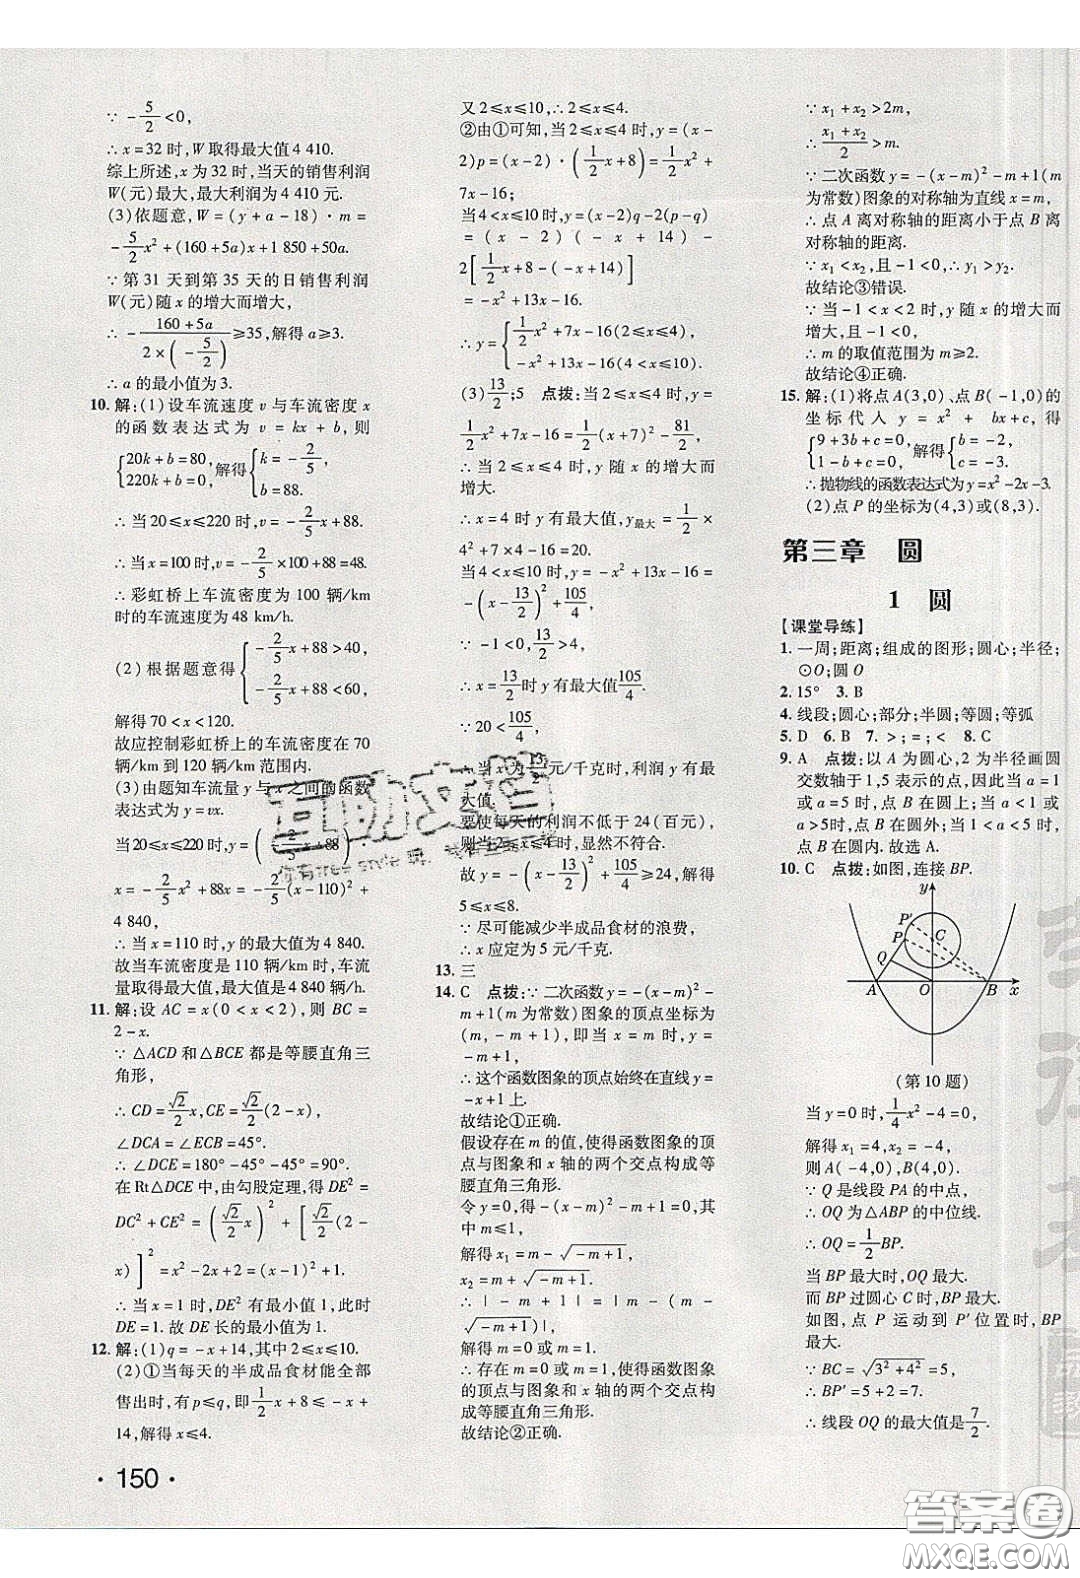 ∵ -5/2<0,
∴ x=32 时, W 取得最大值 4 410.
综上所述,x 为 32 时,当天的销售利润
W(元)最大,最大利润为 4 410 元.
(3)依题意,W=(y+a-18)·m=
-5/2x²+(160+5a)x+1 850+50a.
∵ 第 31 天到第 35 天的日销售利润
W(元)随 x 的增大而增大,
∴ -(160+5a)/(2×(-5/2))≥35,解得 a≥3.
∴ a 的最小值为 3.
10. 解:(1)设车流速度 v 与车流密度 x
的函数表达式为 v = kx + b, 则
{20k+b=80, 220k+b=0, 解得{k=-2/5, b=88.
∴ 当 20≤x≤220 时,v=-2/5x+88.
∴ 当 x=100 时,v=-2/5×100+88=48.
∴ 彩虹桥上车流密度为 100 辆/km
时的车流速度为 48 km/h.
(2)根据题意得{-2/5x+88>40, -2/5x+88<60,
解得 70<x<120.
故应控制彩虹桥上的车流密度在 70
辆/km 到 120 辆/km 范围内.
(3)由题知车流量 y 与 x 之间的函数
表达式为 y=vx.
当 20≤x≤220 时,y=(-2/5x+88)
x=-2/5x²+88x=-2/5(x-110)²+
4 840,
∴ 当 x=110 时,y 的最大值为 4 840.
故当车流密度是 110 辆/km 时,车流
量取得最大值,最大值是 4 840 辆/时.
11. 解:设 AC=x(0<x<2), 则 BC=
2-x.
∵ △ACD 和△BCE 都是等腰直角三
角形,
∴ CD=√2/2x,CE=√2/2(2-x),
∠DCA=∠ECB=45°.
∴ ∠DCE=180°-45°-45°=90°.
在 Rt△DCE 中,由勾股定理,得 DE²=
DC²+CE²=(√2/2x)²+[√2/2(2-
x)]²=x²-2x+2=(x-1)²+1.
∴ 当 x=1 时,DE² 有最小值 1,此时
DE=1. 故 DE 长的最小值为 1.
12. 解:(1)q=-x+14,其中 2≤x≤10.
(2)①当每天的半成品食材能全部
售出时,有 p≤q,即 1/2x+8≤-x+
14,解得 x≤4.
·150·
又 2≤x≤10,∴ 2≤x≤4.
②由①可知,当 2≤x≤4 时,y=(x-
2)p=(x-2)·(1/2x+8)=1/2x²+
7x-16;
当 4<x≤10 时,y=(x-2)q-2(p-q)
=(x-2)(-x+14)-
2[1/2x+8-(-x+14)]
=-x²+13x-16.
∴ y={1/2x²+7x-16(2≤x≤4), -x²+13x-16(4<x≤10).
(3)13/2;5 点拨:当 2≤x≤4 时,y=
1/2x²+7x-16=1/2(x+7)²-81/2,
∴ 当 2≤x≤4 时,y 随 x 的增大而
增大.
∴ x=4 时 y 有最大值,y最大=1/2×
4²+7×4-16=20.
当 4<x≤10 时,y=-x²+13x-16=
-(x-13/2)²+105/4,
∵ -1<0,13/2>4,
∴ x=13/2时 y 有最大值105/4.
∵ 20<105/4,
∴ 当 x 为13/2元/千克时,利润 y 有最
大值.
要使每天的利润不低于 24(百元),
则当 2≤x≤4 时,显然不符合.
故 y=-(x-13/2)²+105/4≥24,解得
5≤x≤8.
∵ 尽可能减少半成品食材的浪费,
∴ x 应定为 5 元/千克.
13. 三
14. C 点拨:∵ 二次函数 y=-(x-m)²-
m+1(m 为常数)图象的顶点坐标为
(m,-m+1),即当 x=m 时,y=
-m+1,
∴ 这个函数图象的顶点始终在直线 y=
-x+1 上.
故结论①正确.
假设存在 m 的值,使得函数图象的顶
点与图象和 x 轴的两个交点构成等
腰直角三角形.
令 y=0,得-(x-m)²-m+1=0,其
中 m≤1.
解得 x₁=m-√-m+1,
x₂=m+√-m+1.
∴ |-m+1|=|m-(m-
√-m+1)|,
解得 m=0 或 m=1.
∴ 存在 m=0 或 m=1,使得函数图象
的顶点与图象和 x 轴的两个交点构
成等腰直角三角形.
故结论②正确.
∵ x₁+x₂>2m,
∴ (x₁+x₂)/2>m.
∵ 二次函数 y=-(x-m)²-m+1(m
为常数)图象的对称轴为直线 x=m,
∴ 点 A 离对称轴的距离小于点 B 离
对称轴的距离.
∵ x₁<x₂,且-1<0,∴ y₁>y₂.
故结论③错误.
∵ 当-1<x<2 时,y 随 x 的增大而
增大,且-1<0,
∴ m 的取值范围为 m≥2.
故结论④正确.
15. 解:(1)将点 A(3,0)、点 B(-1,0)的
坐标代入 y = x² + bx+c, 得
{9+3b+c=0, 1-b+c=0, 解得{b=-2, c=-3.
∴ 抛物线的函数表达式为 y=x²-2x-3.
(2)点 P 的坐标为(4,3)或(8,3).
第三章 圆
1 圆
【课堂导练】
1. 一周;距离;组成的图形;圆心;半径;
⊙O;圆 O
2. 15° 3. B
4. 线段;圆心;部分;半圆;等圆;等弧
5. D 6. B 7. >;=;< 8. C
9. A 点拨:以 A 为圆心,2 为半径画圆
交数轴于 1,5 表示的点,因此当 a=1
或 a=5 时,点 B 在圆上;当 a<1 或
a>5时,点 B 在圆外;当 1<a<5 时,
点 B 在圆内. 故选 A.
10. C 点拨:如图,连接 BP.
y P′ P C Q A O B x
(第 10 题)
当 y=0 时,1/4x²-4=0,
解得 x₁=4,x₂=-4,
则 A(-4,0),B(4,0).
∵ Q 是线段 PA 的中点,
∴ OQ 为△ABP 的中位线.
∴ OQ=1/2BP.
当 BP 最大时,OQ 最大.
而 BP 过圆心 C 时,BP 最大.
如图,点 P 运动到 P′位置时,BP
最大.
∵ BC=√3²+4²=5,
∴ BP′=5+2=7.
∴ 线段 OQ 的最大值是7/2.
答案卷
MXQE.COM